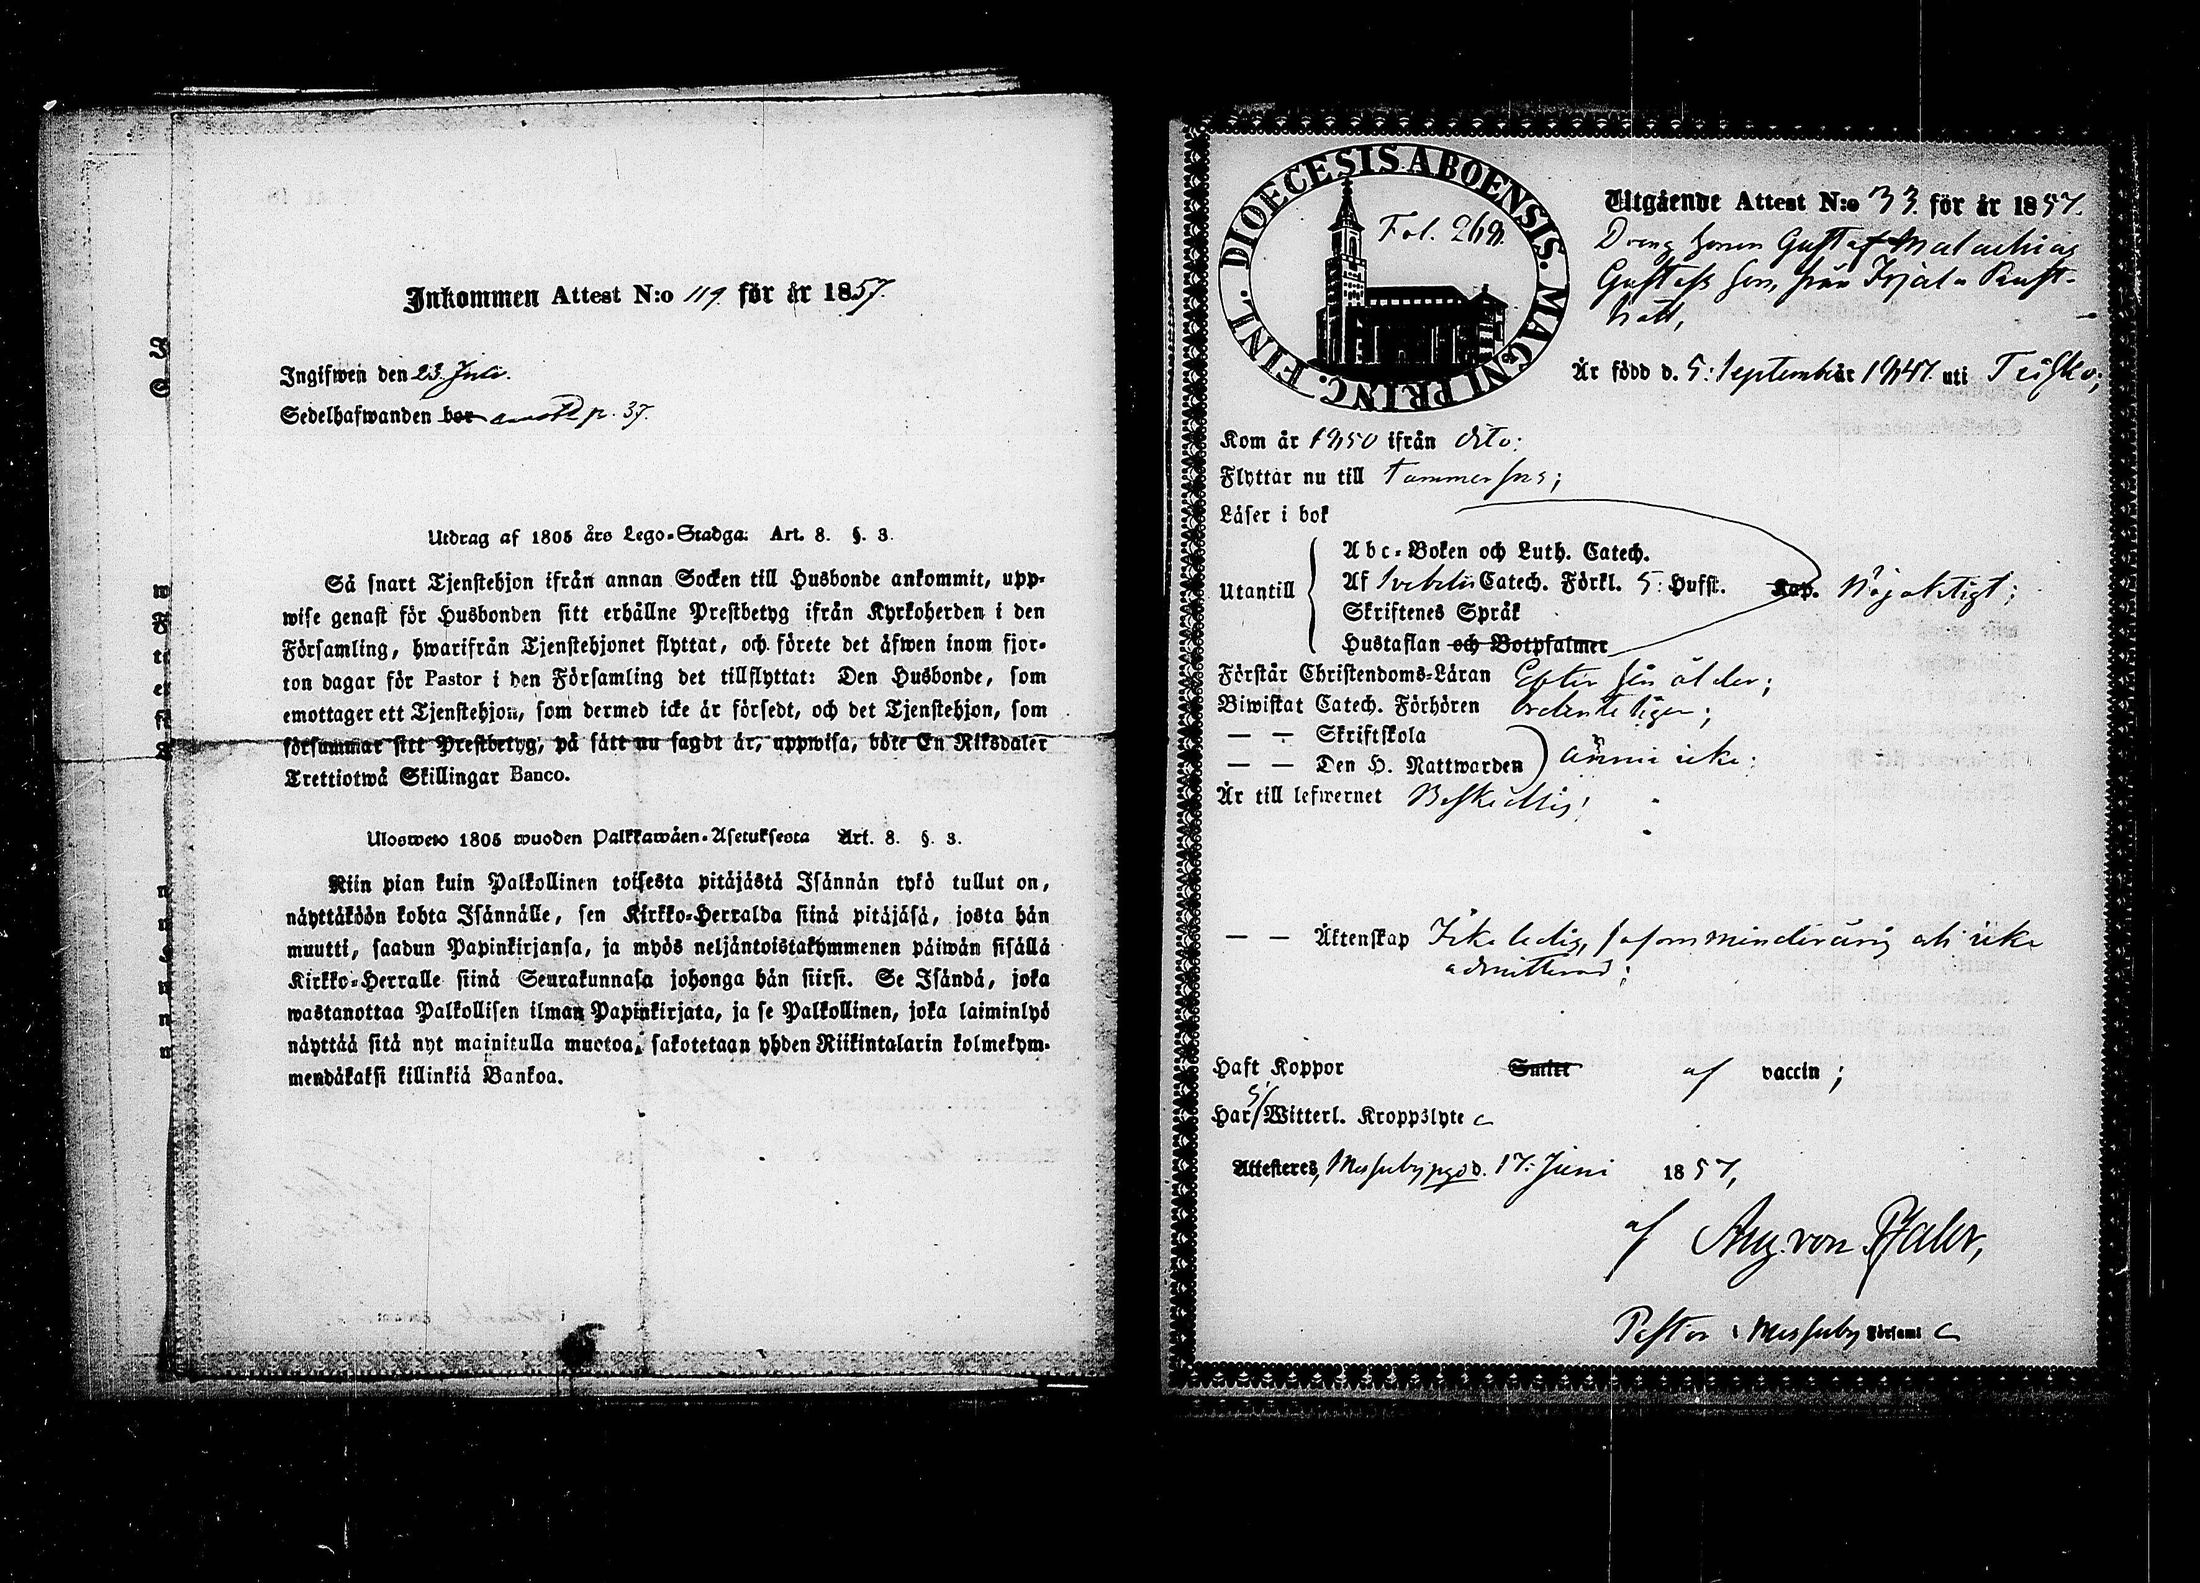 Inkommen Attest N:o 119. för år 1857.
Ingifwen den 23. Juli.
Sedelhafwanden bor p. 37.
Utdrag af 1805 års Lego-Stadga: Art. 8. §. 3.
Så snart Tjenstehjon ifrån annan Socken till Husbonde ankommit, upp-
wise genast för Husbonden sitt erhållne Prestbetyg ifrån Kyrkoherden i den
Församling, hwarifrån Tjenstehjonet flyttat, och förete det äfwen inom fjor-
ton dagar för Pastor i den Församling det tillflyttat: Den Husbonde, som
emottager ett Tjenstehjon, som dermed icke är försedt, och det Tjenstehjon, som
försummar sitt Prestbetyg, på sätt nu sagdt är, uppwisa, böte En Riksdaler
Trettiotwå Skillingar Banco.
Ulosweto 1805 wuoden Palkkawäen-Asetuksesta Art. 8. §. 3.
Niin pian kuin Palkollinen toisesta pitäjästä Isännän tykö tullut on,
näyttäköön kohta Isännälle, sen Kirkko-Herralda siinä pitäjäsä, josta hän
muutti, saadun Papinkirjansa, ja myös neljäntoistakymmenen päiwän sisällä
Kirkko-Herralle siinä Seurakunnasa johonga hän siirsi. Se Isändä, joka
wastanottaa Palkollisen ilman Papinkirjata, ja se Palkollinen, joka laiminlyö
näyttää sitä nyt mainitulla muotoa, sakotetaan yhden Riikintalarin kolmekym-
mendäkaksi killinkiä Bankoa.
DIOECESIS ABOENSIS. MAGNI PRINC. FINL.
Fol. 269.
Utgående Attest N:o 33. för år 1857.
Dreng sonen Gustaf Malachias
Gustafs son, från Rust-
håll,
Är född d. 5: September 1847. uti Teisko;
Kom år 1850 ifrån dito:
Flyttar nu till Tammerfors;
Läser i bok
Utantill
Abc-Boken och Luth. Catech.
Af Svebilii Catech. Förkl. 5: Hufst. Kap. Nöjaktigt;
Skriftenes Språk
Hustaflan och Botpsalmer
Förstår Christendoms-Läran Efter sin ålder;
Biwistat Catech. Förhören ordenteligen;
— — Skriftskola
— — Den H. Nattwarden ännu icke;
Är till lefwernet Beskedlig;
— — Äktenskap Icke ledig, såsom minderårig och icke
admitterad;
Haft Koppor Smitt af vaccin;
Har Witterl. Kroppslyte
Attesteres, Messuby d. 17: Juni 1857,
af Aug. von Pfaler,
Pastor i Messuby Församl